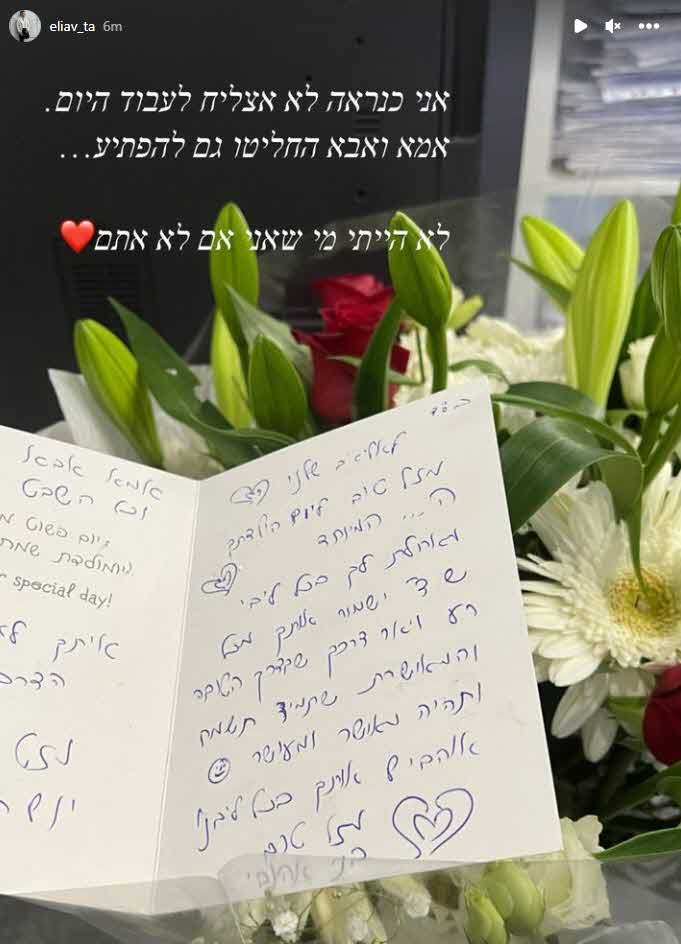 eliav_ta 6m
אני כנראה לא אצליח לעבוד היום.
אמא ואבא החליטו גם להפתיע...
לא הייתי מי שאני אם לא אתם❤️
ב"סד
לאליאב שלנו
מזל טוב ליום הולדתך
ה... המיוחד
מאחלת לך בכל ליבי
ש ד' ישמור אותך מכל
רע ויאר דרכך שבדרך הטובה
והמאושרת שתמיד תשמח
ותהיה מאושר ומעושר
אוהבים אותך בכל ליבנו
מזל טוב
אמא אבא
וכל השבט
יום פשוט
special day!
אותך